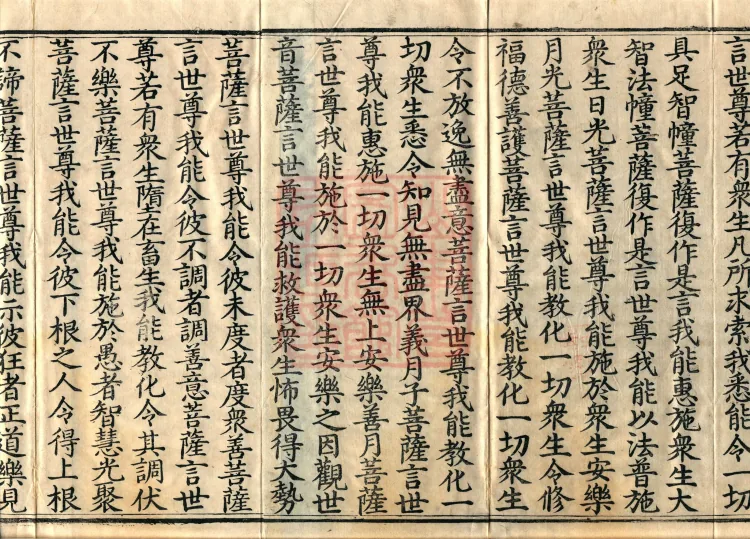 言世尊若有衆生凡所求索我悉能令一切
具足智幢菩薩復作是言我能惠施衆生大
智法幢菩薩復作是言世尊我能以法普施
衆生日光菩薩言世尊我能施於衆生安樂
月光菩薩言世尊我能教化一切衆生令修
福德善護菩薩言世尊我能教化一切衆生
令不放逸無盡意菩薩言世尊我能教化一
切衆生悉令知見無盡界義月子菩薩言世
尊我能惠施一切衆生無上安樂善月菩薩
言世尊我能施於一切衆生安樂之因觀世
音菩薩言世尊我能救護衆生怖畏得大勢
菩薩言世尊我能令彼未度者度衆善菩薩
言世尊我能令彼不調者調善意菩薩言世
尊若有衆生墮在畜生我能教化令其調伏
不樂菩薩言世尊我能施於愚者智慧光聚
菩薩言世尊我能令彼下根之人令得上根
不諦菩薩言世尊我能示彼狂者正道樂見